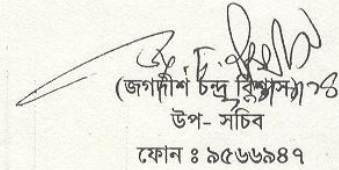 (জগদীশ চন্দ্র বিশ্বাস)
উপ- সচিব
ফোন ঃ ৯৫৬৬৯৪৭